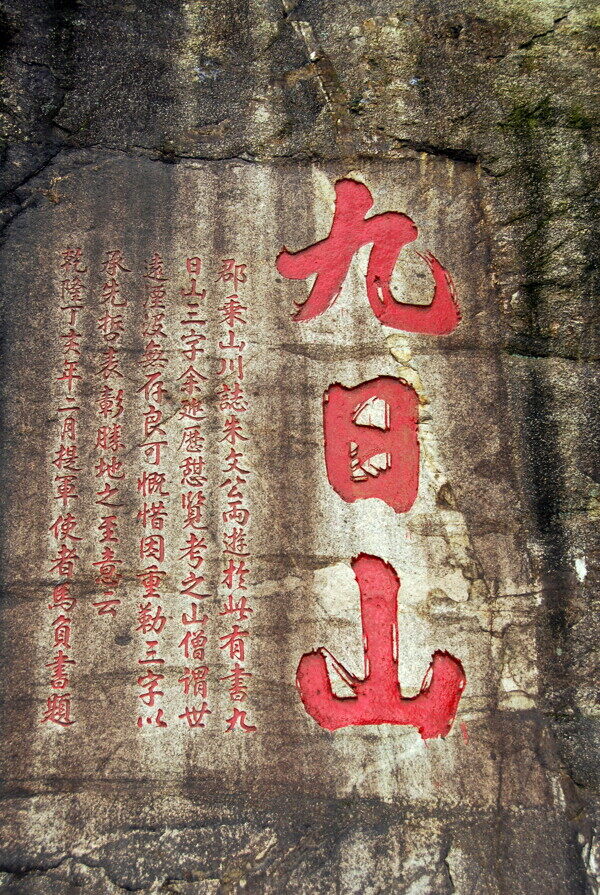 九日山
郡乘山川誌朱文公两遊於此有書九
日山三字余遊歷憇覽考之山僧謂世
遠湮没無存良可慨惜因重勒三字以
承先哲表彰勝地之至意云
乾隆丁亥年二月提軍使者馬負書題